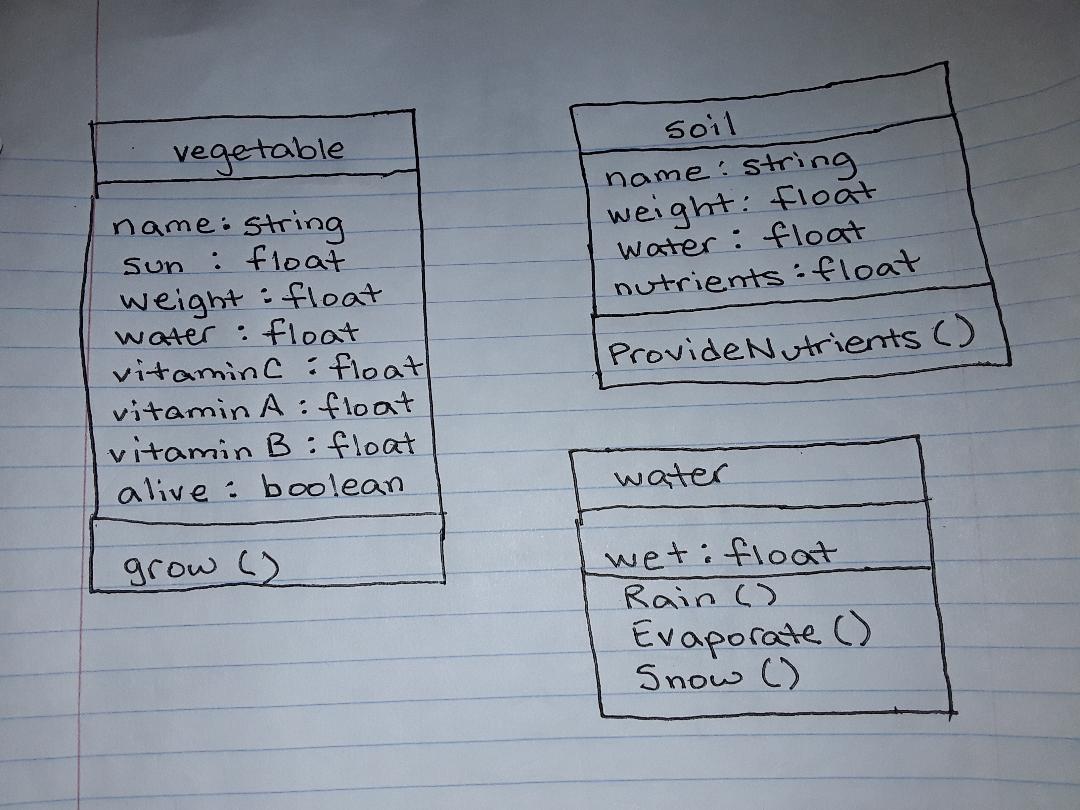 vegetable
name: string
sun : float
weight : float
water : float
vitaminC : float
vitamin A : float
vitamin B : float
alive : boolean
grow ()
soil
name : string
weight : float
water : float
nutrients : float
ProvideNutrients ()
water
wet : float
Rain ()
Evaporate ()
Snow ()